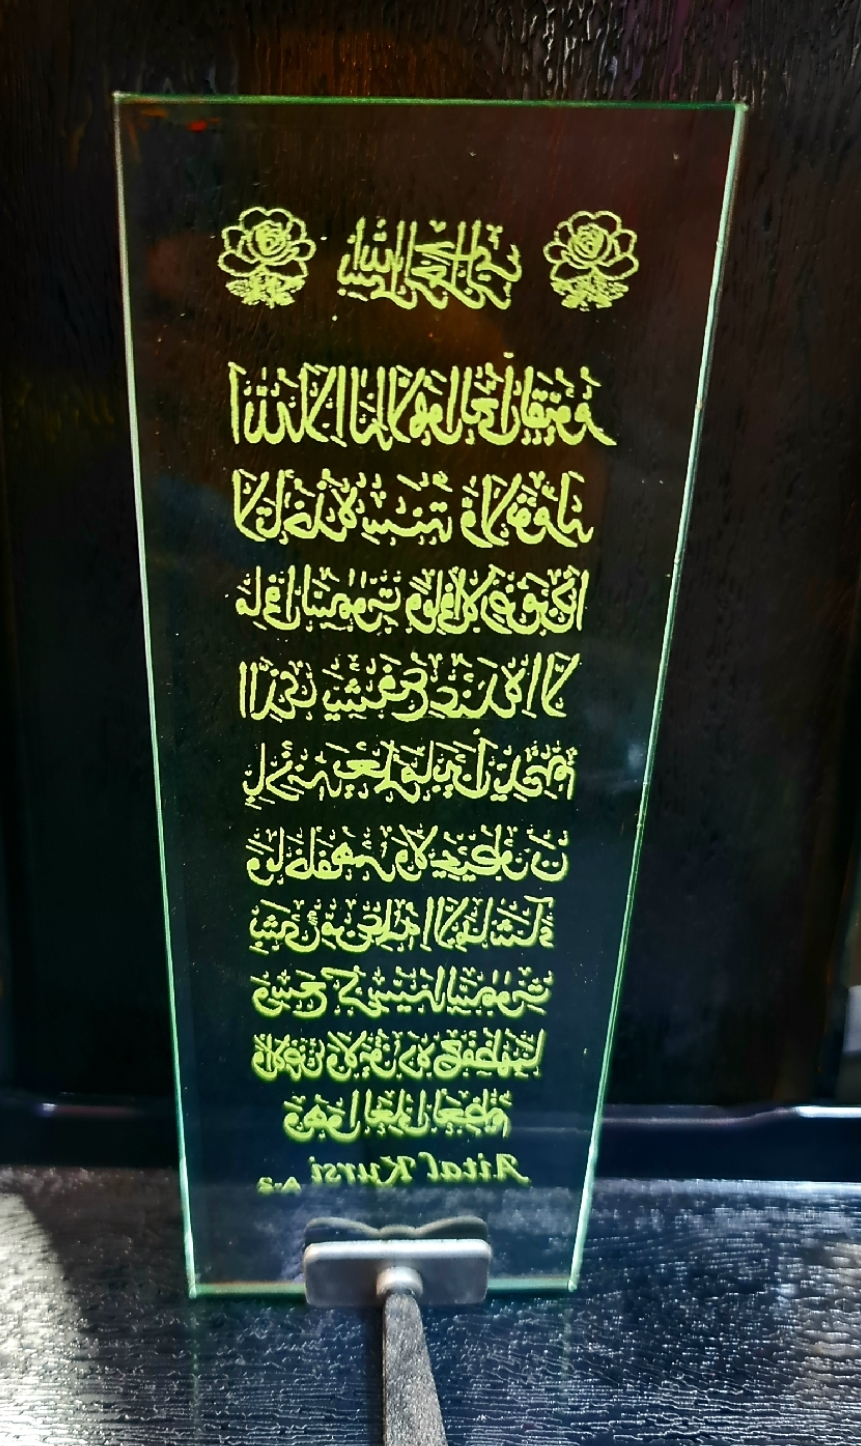 بسم الله الرحمن الرحيم
اَللّٰهُ لَا اِلٰهَ اِلَّا هُوَ الْحَىُّ الْقَيُّوْمُ
لَا تَأْخُذُهٗ سِنَةٌ وَّلَا نَوْمٌ لَهٗ
مَا فِى السَّمٰوٰتِ وَمَا فِى الْاَرْضِ مَنْ ذَا
الَّذِىْ يَشْفَعُ عِنْدَهٗ اِلَّا
بِاِذْنِهٖ يَعْلَمُ مَا بَيْنَ اَيْدِيْهِمْ
وَمَا خَلْفَهُمْ وَلَا يُحِيْطُوْنَ
بِشَىْءٍ مِّنْ عِلْمِهٖ اِلَّا بِمَا شَآءَ
وَسِعَ كُرْسِيُّهُ السَّمٰوٰتِ
وَالْاَرْضَ وَلَا يَئُوْدُهٗ حِفْظُهُمَا
وَهُوَ الْعَلِىُّ الْعَظِيْمُ
Aital Kursi